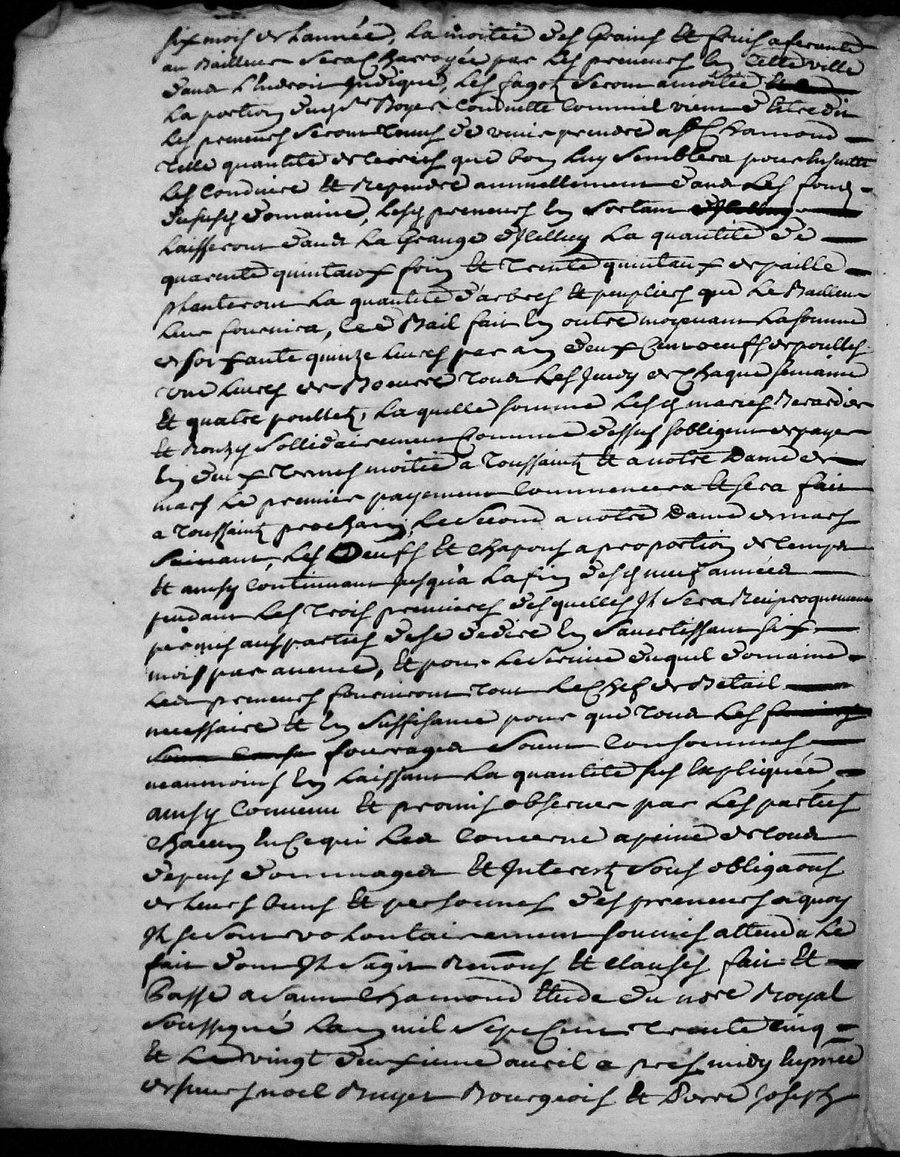 six mois de lannée, la moitiée des Grains et fruis aferante
au Bailleur sera charroyée par les preneurs en cette ville
dans l'Endroit Indiqué, les fagots seront amoitée
la portion dud. sr Boyer conduitte comme il vient d'Etre dit
les preneurs seront tenus de venir prendre a st Chamond
telle quantité de que bon luy semblera pour ensuitte
les conduire et Rependre annuellement dans les fonds
dud. Domaine, lesd. preneurs en sortant
laisseront dans la Grange d'Icelluy la quantité de
quarente quintaux foin et trente quintaux de paille
planteront la quantité d'arbres et peupliers que le Bailleur
leur fournira, le d. Bail fait en outre moyenant la somme
de soixante quinze livres par an deux Cent oeufs de poulles
une livres de Beurre tous les Jeudy de Chaque semaine
et quatre poullets, la quelle somme les d. mariés Berardier
et sollidairement comme dessus sobligent de payer
en deux termes moitiée a toussaints et a notre Dame de
mars le premier payement commencera et sera fait
a toussaints prochain, le second a notre Dame de mars
suivant, les Oeufs et chapons a proportion de temps
et ainsy continuant jusqu'a la fin desd. neuf années
pendant les trois premieres desquelles Il sera Reciproquement
permis aux parties de se dedire en savertissant six
mois par avence, et pour le service duquel domaine
led. preneurs fourniront tout le chef de Betail
necessaire et en suffisance pour que tous les
fourrages soient consommés
neaumoins en laissant la quantité sus Expliquée
ainsy convenu et promis observer par les parties
chacun en ce qui les concerne a peine de tous
depens dommages et Interests sous obligaons
de leurs biens et personnes des preneurs aquoy
Ils se sont volontairement soumis attendu le
fait dont Il sagit Renons et clauses fait et
Passé a saint Chamond Etude du nore Royal
soussigné lan mil sept Cent trente cinq
et le vingt deuxieme avril apres midy En pnce
de sieurs noel Bourgeois et Pierre Joseph